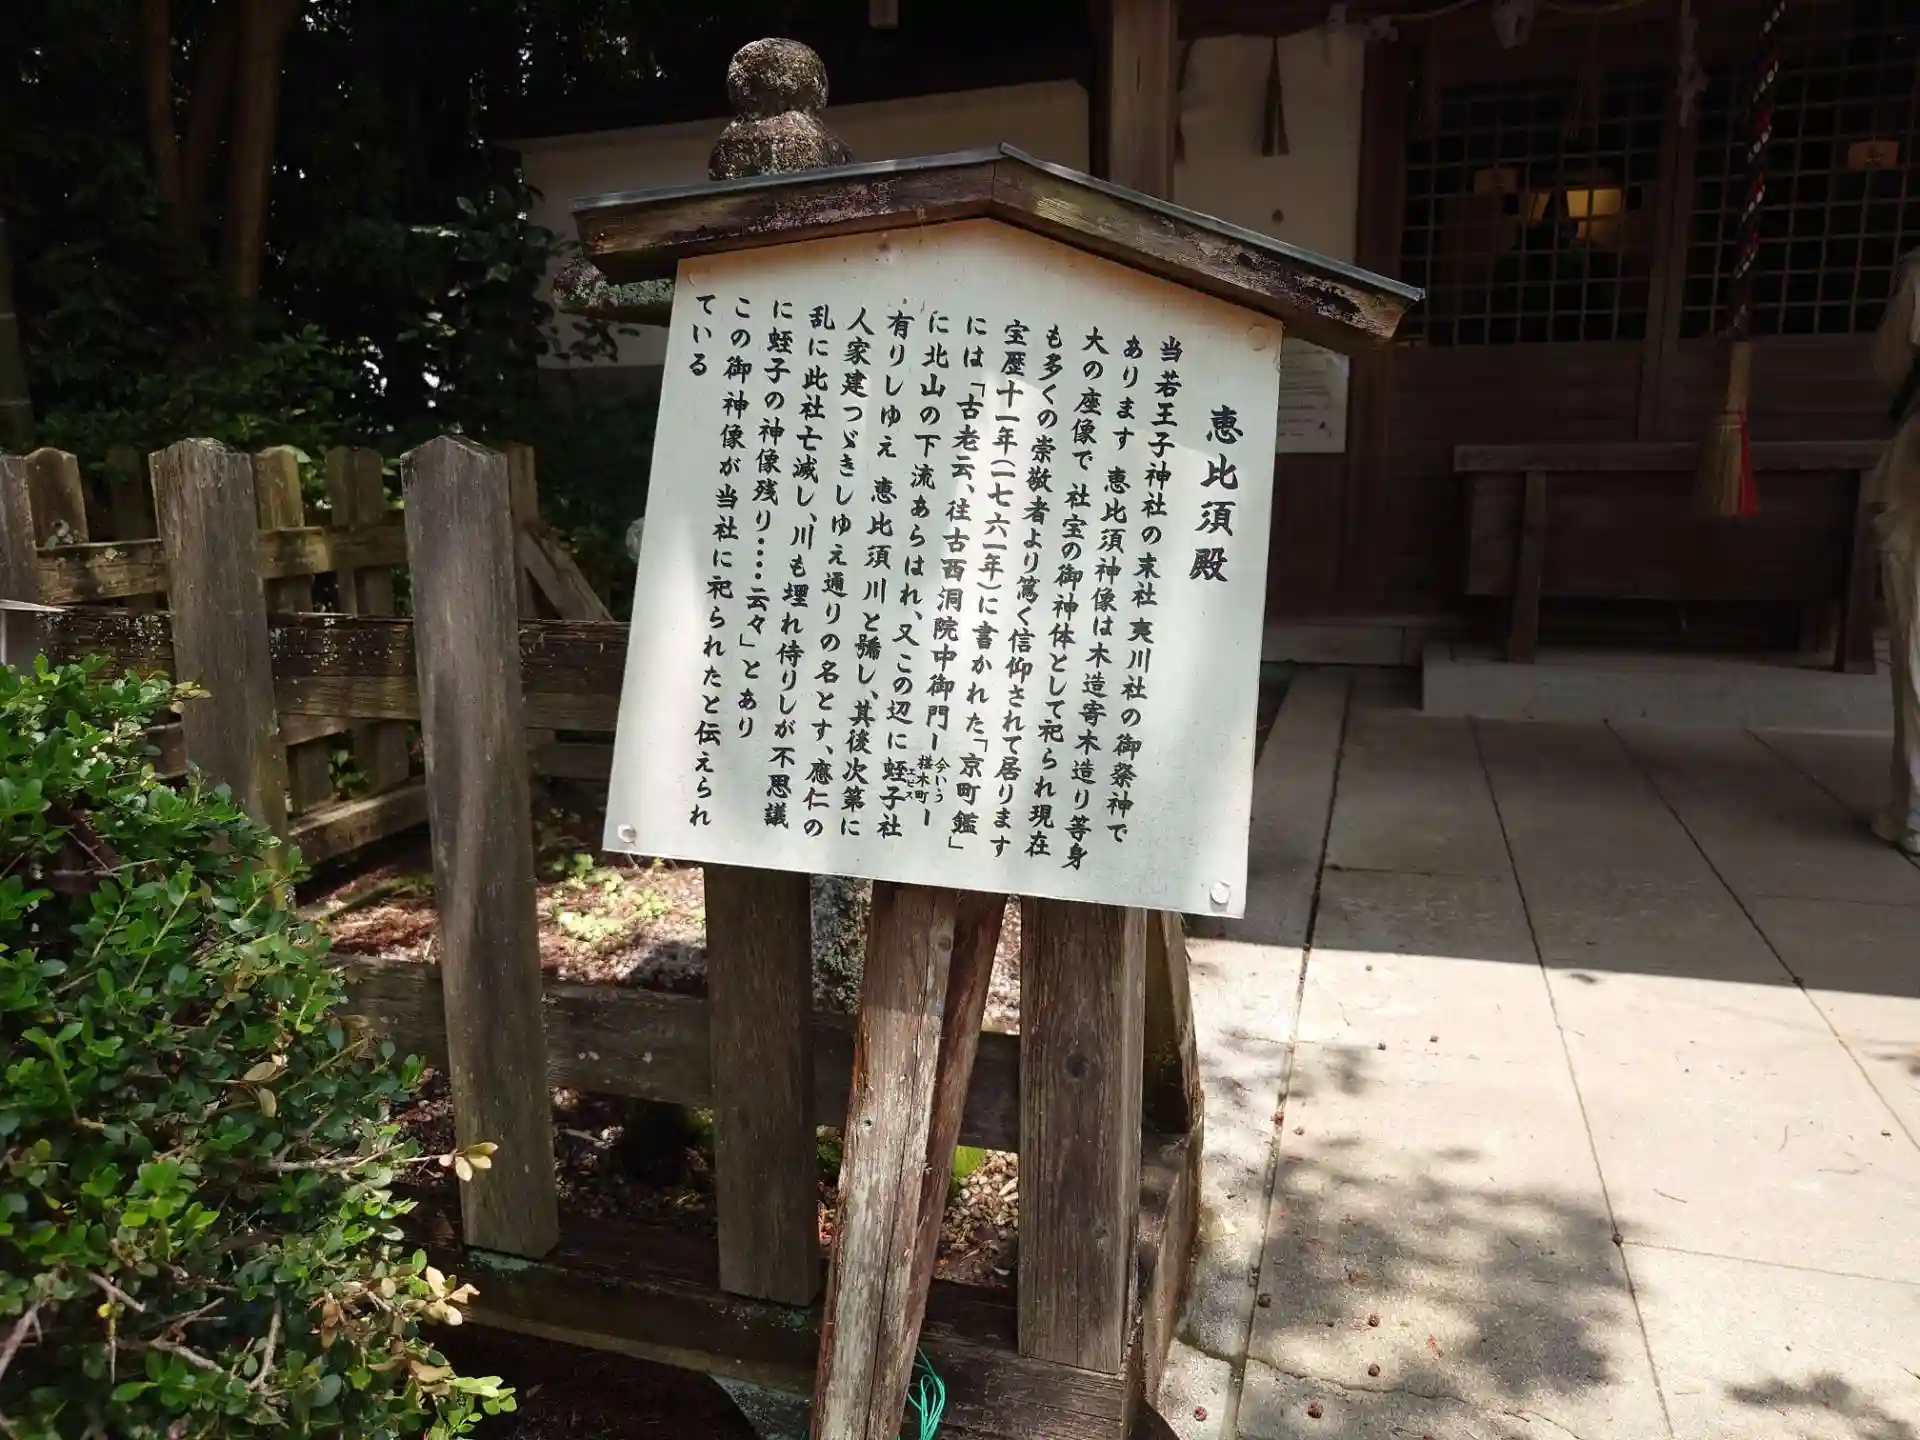 恵比須殿
当若王子神社の末社夷川社の御祭神で
あります 恵比須神像は木造寄木造り等身
大の座像で 社宝の御神体として祀られ現在
も多くの崇敬者より篤く信仰されて居ります
宝歴十一年(一七六一年)に書かれた「京町鑑」
には「古老云、往古西洞院中御門ー今いう椹木町ー
に北山の下流あらはれ、又この辺に蛭子社エビス
有りしゆえ 恵比須川と號し、其後次第に
人家建つゞきしゆえ通りの名とす、應仁の
乱に此社亡滅し、川も埋れ侍りしが不思議
に蛭子の神像残り・・・・云々」とあり
この御神像が当社に祀られたと伝えられ
ている